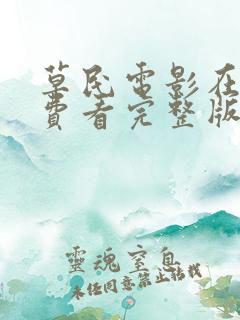 草民電影在
費看完整版
靈魂窒息
未任同意禁止轉載